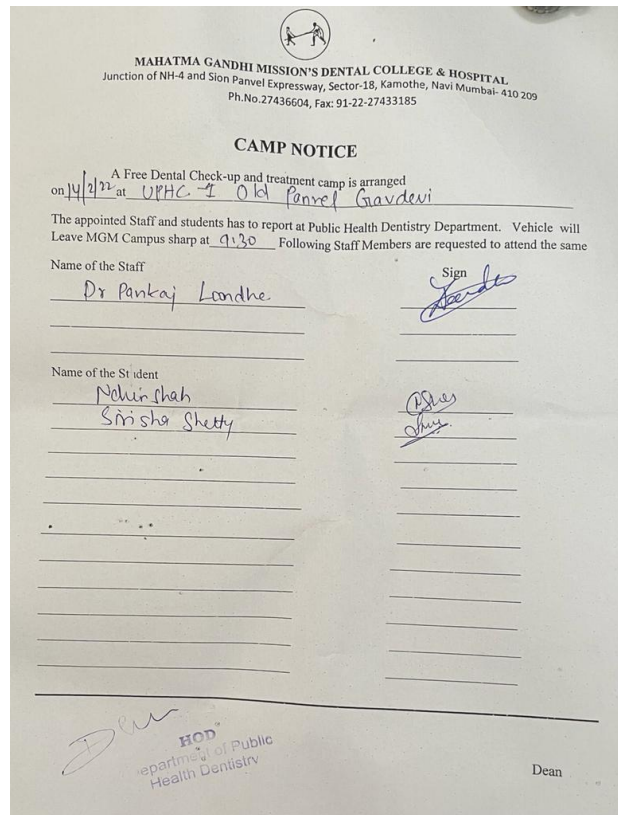 MAHATMA GANDHI MISSION'S DENTAL COLLEGE & HOSPITAL
Junction of NH-4 and Sion Panvel Expressway, Sector-18, Kamothe, Navi Mumbai- 410 209
Ph.No.27436604, Fax: 91-22-27433185
CAMP NOTICE
A Free Dental Check-up and treatment camp is arranged
on 14/2/22 at UPHC-1 Old Panvel Gavdevi
The appointed Staff and students has to report at Public Health Dentistry Department. Vehicle will
Leave MGM Campus sharp at 9:30 Following Staff Members are requested to attend the same
Name of the Staff Sign
Dr Pankaj Londhe
Name of the Student
Shah
Sirisha Shetty
HOD
epartment of Public
Health Dentistry
Dean